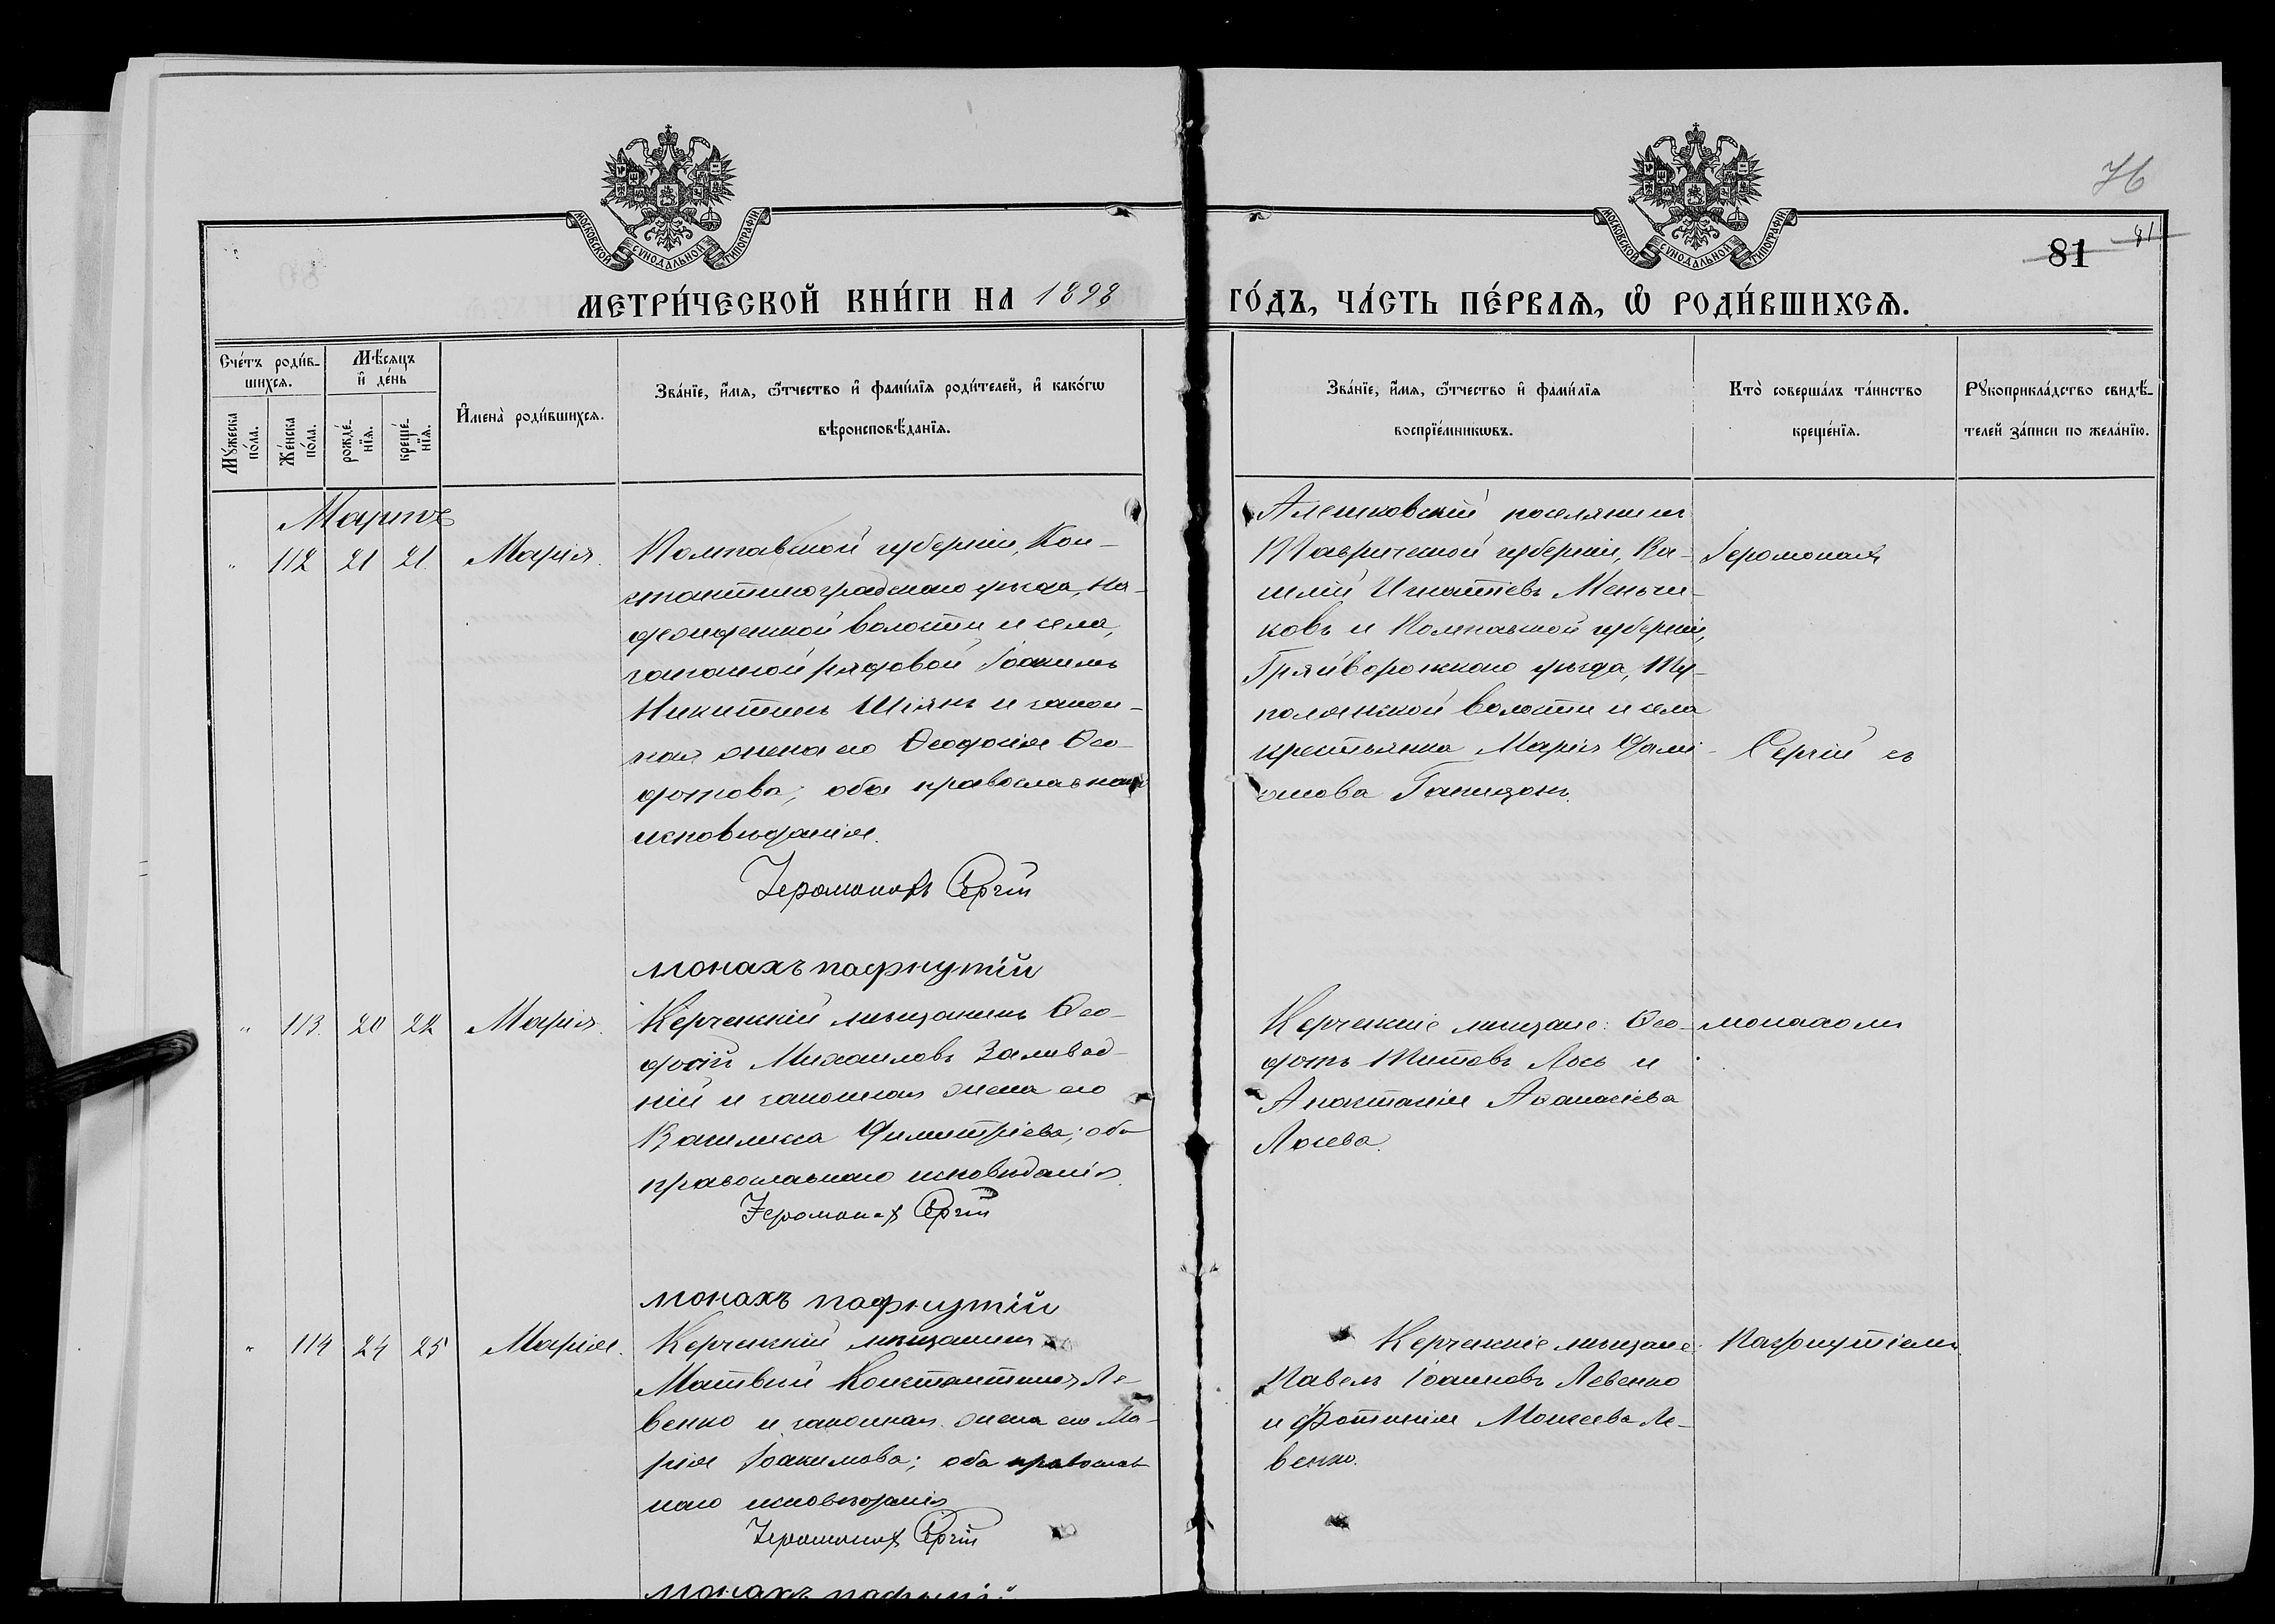 76
81
81
МОСКОВСКОЙ СѴНОДАЛЬНОЙ ТИПОГРАФІИ
МОСКОВСКОЙ СѴНОДАЛЬНОЙ ТИПОГРАФІИ
МЕТРИ́ЧЕСКОЙ КНИ́ГИ НА 1898 ГО́ДЪ, ЧА́СТЬ ПЕ́РВАѦ, Ѿ РОДИ́ВШИХСѦ.
Счéтъ роди́в-
шихсѧ.
Мꙋ́жеска
по́ла.
Же́нска
по́ла.
Мѣ́сѧцъ
и҆ де́нь
рожде́-
нїѧ.
креще́-
нїѧ.
И҆мена̀ роди́вшихсѧ.
Зва́нїе, и҆́мѧ, ѻ҆́тчество и҆ фами́лїѧ роди́телей, и҆ како́гѡ
вѣроисповѣ́данїѧ.
Зва́нїе, и҆́мѧ, ѻ҆́тчество и҆ фами́лїѧ
воспрїе́мникѡвъ.
Кто̀ соверша́лъ та́инство
креще́нїѧ.
Рꙋкоприкла́дство свидѣ́-
телей за́писи по жела́нїю.
Мартъ
" 112 21 21. Марія.
Полтавской губерніи, Кон-
стантиноградскаго уѣзда, На-
волости и села,
запасной рядовой Іоакимъ
Никитинъ Шіянъ и закон-
ная жена его Ѳеодосія Ѳео-
дотова; оба православнаго
исповѣданія.
Іеромонахъ Сергій
монахъ пафнутій
Алешковскій поселянинъ
Таврической губерніи, Ва-
силій Игнатіевъ Меньши-
ковъ и Полтавской губерніи,
уѣзда,
волости и села
крестьянка Марія Дамі-
анова
Іеромонахъ
Сергій съ
" 113. 20 22 Марія.
Керченскій мѣщанинъ Ѳео-
досій Михаиловъ Заливад-
ній и законная жена его
Василисса Димитріева; оба
православнаго исповѣданія.
Іеромонах Сергій
монахъ пафнутій
Керченскіе мѣщане: Ѳео-
дотъ Титовъ Лось и
Анастасія Аѳанасіева
Лосева.
монахомъ
" 114 24 25 Марія.
Керченскій мѣщанинъ
Матвѣй Константиновъ Ле-
венко и законная жена его Ма-
рія Іоакимова; оба православ-
наго исповѣданія
Іеромонах Сергій
монахъ пафнутій
Керченскіе мѣщане:
Павелъ Іоанновъ Левенко
и Фотинія Моисеева Ле-
венко.
Пафнутіемъ.